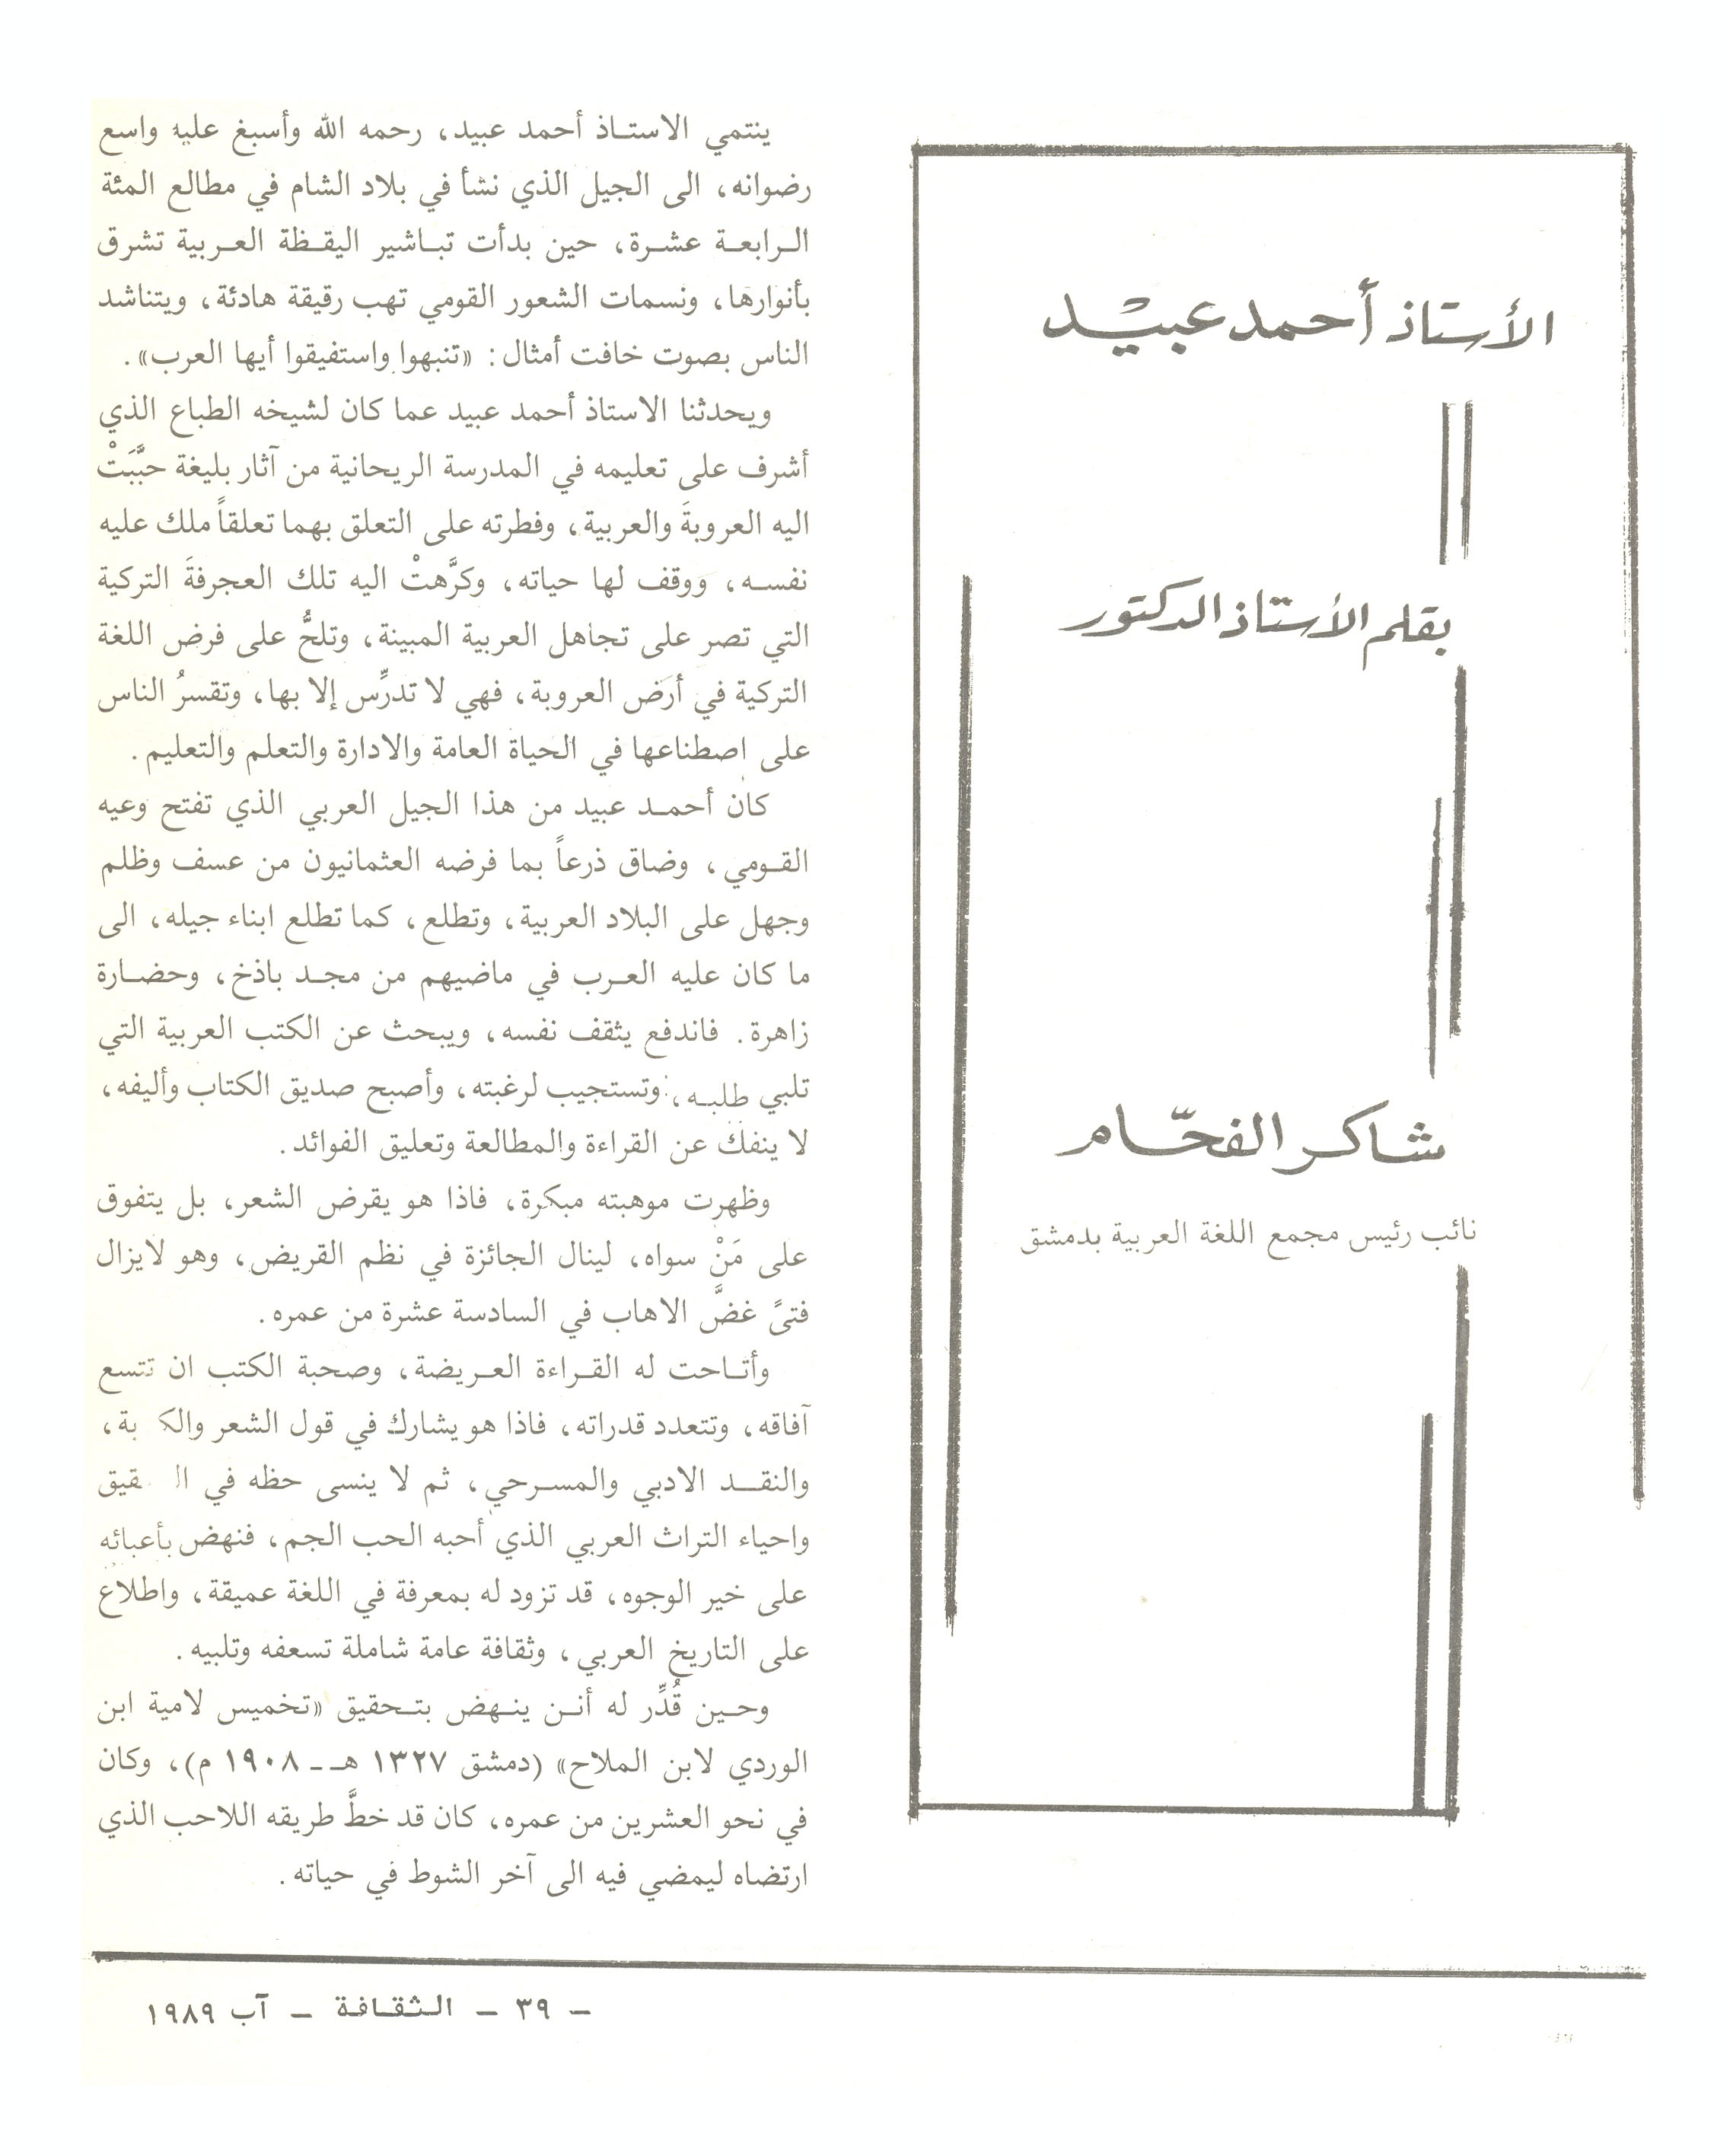 الأستاذ أحمد عبيد
بقلم الأستاذ الدكتور
شاكر الفحّام
نائب رئيس مجمع اللغة العربية بدمشق
ينتمي الاستاذ أحمد عبيد، رحمه الله وأسبغ عليه واسع
رضوانه، الى الجيل الذي نشأ في بلاد الشام في مطالع المئة
الرابعة عشرة، حين بدأت تباشير اليقظة العربية تشرق
بأنوارها، ونسمات الشعور القومي تهب رقيقة هادئة، ويتناشد
الناس بصوت خافت أمثال: «تنبهوا واستفيقوا أيها العرب».
ويحدثنا الاستاذ أحمد عبيد عما كان لشيخه الطباع الذي
أشرف على تعليمه في المدرسة الريحانية من آثار بليغة حبَّبَتْ
اليه العروبةَ والعربية، وفطرته على التعلق بهما تعلقاً ملك عليه
نفسه، ووقف لها حياته، وكرَّهتْ اليه تلك العجرفةَ التركية
التي تصر على تجاهل العربية المبينة، وتلحُّ على فرض اللغة
التركية في أرض العروبة، فهي لا تدرِّس إلا بها، وتقسرُ الناس
على اصطناعها في الحياة العامة والادارة والتعلم والتعليم.
كان أحمد عبيد من هذا الجيل العربي الذي تفتح وعيه
القومي، وضاق ذرعاً بما فرضه العثمانيون من عسف وظلم
وجهل على البلاد العربية، وتطلع، كما تطلع ابناء جيله، الى
ما كان عليه العرب في ماضيهم من مجد باذخ، وحضارة
زاهرة. فاندفع يثقف نفسه، ويبحث عن الكتب العربية التي
تلبي طلبه، وتستجيب لرغبته، وأصبح صديق الكتاب وأليفه،
لا ينفك عن القراءة والمطالعة وتعليق الفوائد.
وظهرت موهبته مبكرة، فاذا هو يقرض الشعر، بل يتفوق
على مَنْ سواه، لينال الجائزة في نظم القريض، وهو لايزال
فتىً غضَّ الاهاب في السادسة عشرة من عمره.
وأتاحت له القراءة العريضة، وصحبة الكتب ان تتسع
آفاقه، وتتعدد قدراته، فاذا هو يشارك في قول الشعر
والنقد الادبي والمسرحي، ثم لا ينسى حظه في
واحياء التراث العربي الذي أحبه الحب الجم، فنهض بأعبائه
على خير الوجوه، قد تزود له بمعرفة في اللغة عميقة، واطلاع
على التاريخ العربي، وثقافة عامة شاملة تسعفه وتلبيه.
وحين قُدِّر له أنن ينهض بتحقيق «تخميس لامية ابن
الوردي لابن الملاح» (دمشق ١٣٢٧ هـ ـ ١٩٠٨ م)، وكان
في نحو العشرين من عمره، كان قد خطَّ طريقه اللاحب الذي
ارتضاه ليمضي فيه الى آخر الشوط في حياته.
– ٣٩ – الثقافة – آب ١٩٨٩